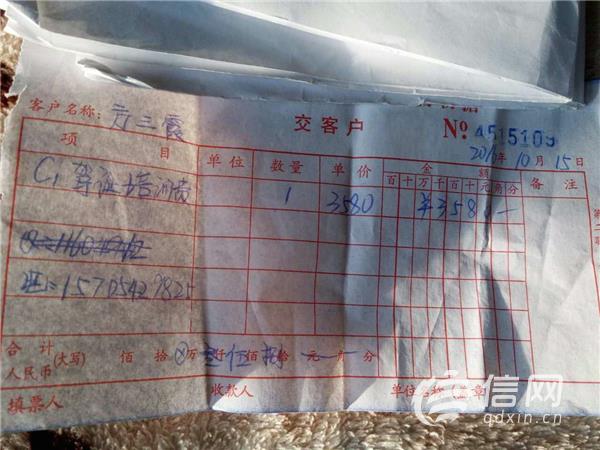 客户名称: 方三霞
交客户
No 4515109
2016年10月15日
项目 单位 数量 单价 金额 备注
百十万千百十元角分
C1 驾证培训费 1 3580 ¥3580-
电: 15705429825
合计 人民币 (大写) 佰 拾 ⊗万 叁仟 伍佰 捌拾 元 角 分
填票人 收款人 单位名称 盖章
信网
qdxin.cn